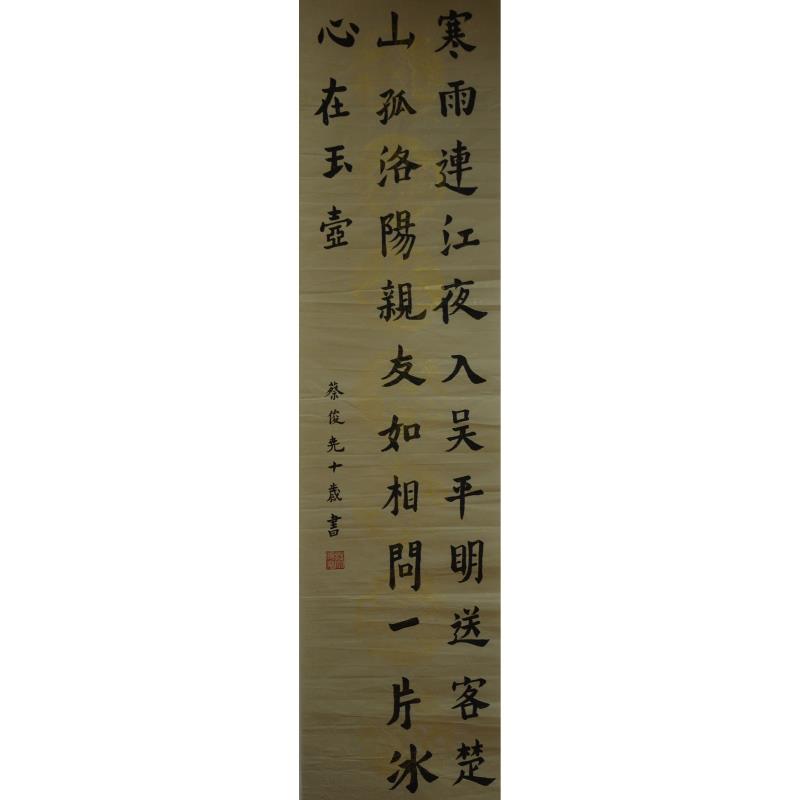 寒雨連江夜入吴平明送客楚
山孤洛陽親友如相問一片冰
心在玉壺
蔡俊尧十歲書